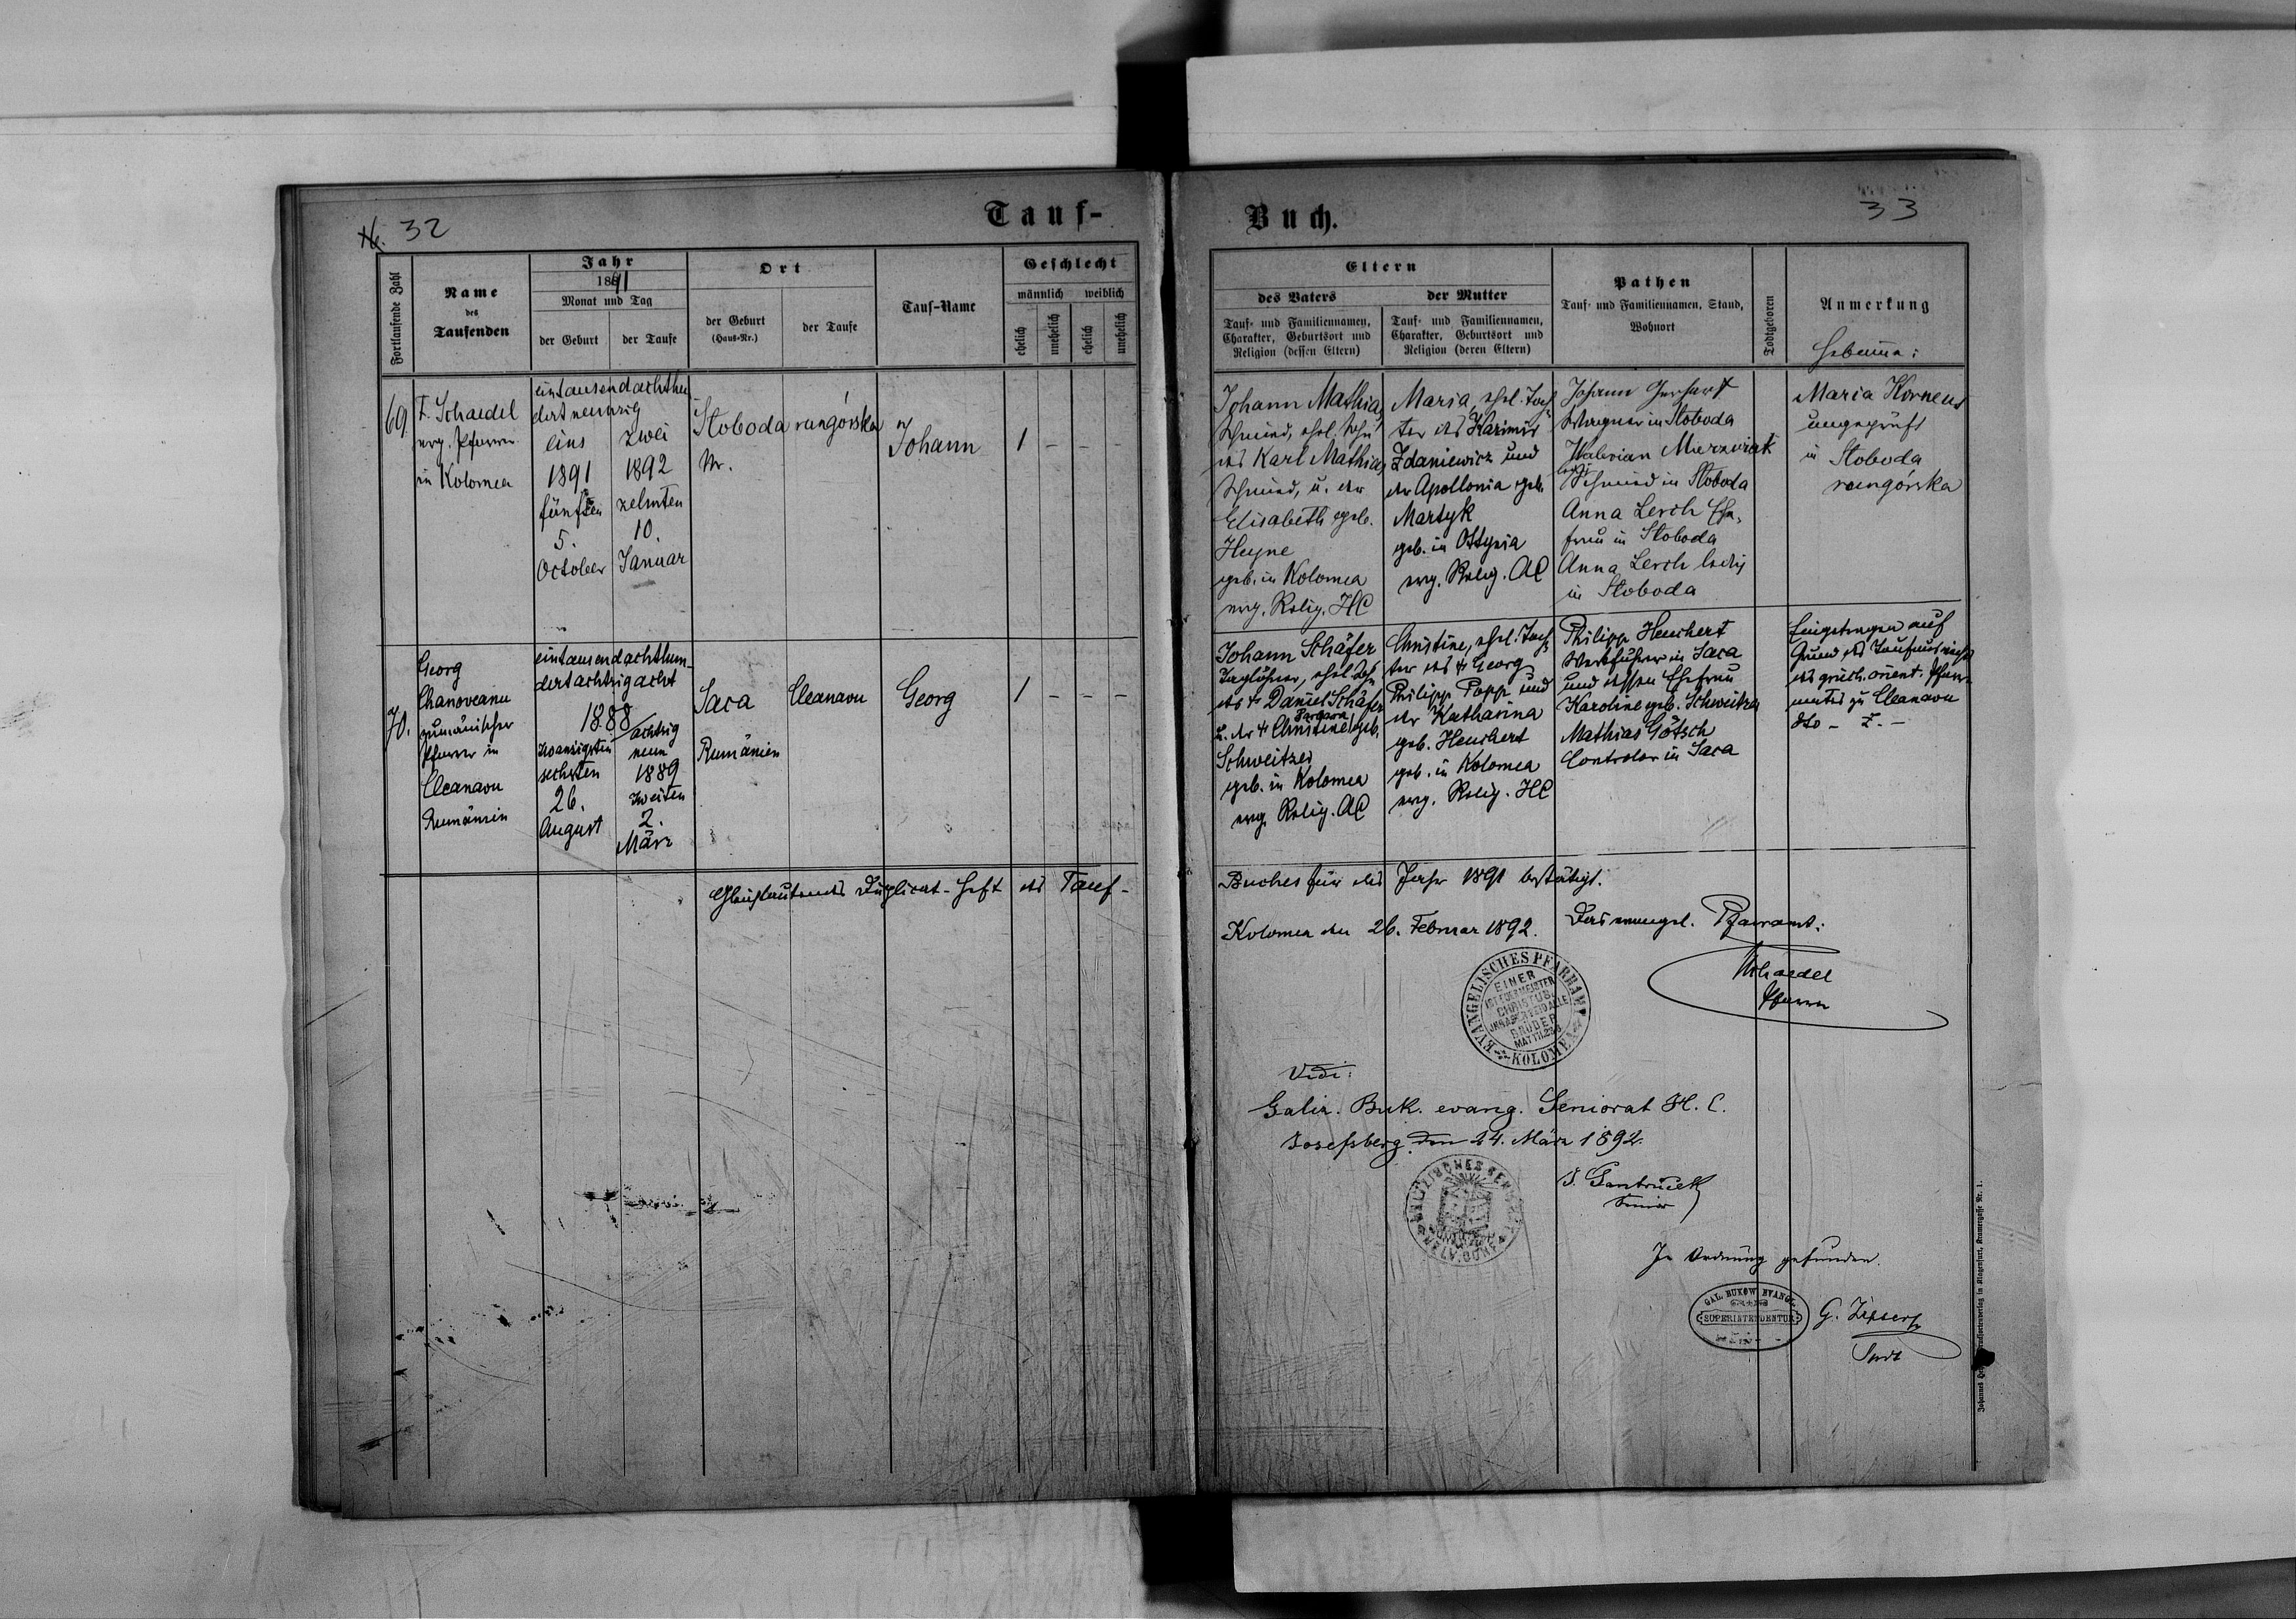 32
Tauf-
Fortlaufende Zahl
Name
des
Taufenden
Jahr
1891
Monat und Tag
der Geburt
der Taufe
Ort
der Geburt
(Haus-Nr.)
der Taufe
Tauf-Name
Geschlecht
männlich
weiblich
ehelich
unehelich
ehelich
unehelich
69.
F. Schaedel
evg. Pfarrer
in Kolomea
eintausendachthun
dert neunzig
eins
1891
fünften
5.
October
zwei
1892
zehnten
10.
Januar
Sloboda rungórska
Nr.
Johann
1 - - -
70.
Georg
Chanoveanu
rumänischer
Pfarrer in
Cleanavu
Rumänien
eintausendachthun-
dertachtzigacht
1888
zwanzigsten
sechsten
26.
August
achtzig
neun
1889
zweiten
2.
März
Saca
Rumänien
Cleanavu
Georg
1 - - -
Gleichlautendes Duplicat-Heft des Tauf-
Buch.
33
Eltern
des Vaters
Tauf- und Familiennamen,
Charakter, Geburtsort und
Religion (dessen Eltern)
der Mutter
Tauf- und Familiennamen,
Charakter, Geburtsort und
Religion (deren Eltern)
Pathen
Tauf- und Familiennamen, Stand,
Wohnort
Todtgeboren
Anmerkung
Hebamme:
Johann Mathias
Schmied, ehel. Sohn
des Karl Mathias
Schmied, u. der
Elisabeth geb.
Heyne
geb. in Kolomea
evg. Relig. HC
Maria, ehel. Toch
ter des Kazimir
Zdaniewicz und
der Apollonia geb.
Martyk
geb. in Ottynia
evg. Relig. AC
Johann Gerhart
Wagner in Sloboda
Walerian Mierzwiak
ledig
Schmied in Sloboda
Anna Lerch Ehe-
frau in Sloboda
Anna Lerch ledig
in Sloboda
Maria Korneus
ungeprüft
in Sloboda
rungórska
Johann Schäfer
Taglöhner, ehel. Sohn
des + Daniel Schäfer
Barbara
u. der + Christine geb.
Schweitzer
geb. in Kolomea
evg. Relig. AC
Christine, ehel. Toch
ter des + Georg
Philipp Popp und
der Katharina
geb. Heuchert
geb. in Kolomea
evg. Relig. HC
Philipp Heuchert
Werkführer in Saca
und dessen Ehefrau
Karoline geb. Schweitzer
Mathias Götsch
Controlor in Saca
Eingetragen auf
Grund des Taufausweises
des griech. orient. Pfarr-
amtes zu Cleanavu
Buches für das Jahr 1891 bestätigt.
Kolomea den 26. Februar 1892.
Das evangel. Pfarramt:
Schaedel
Pfarrer
EVANGELISCHES PFARRAMT
KOLOMEA
EINER
IST EUER MEISTER
CHRISTUS,
IHR ABER SEID ALLE
BRÜDER
MATTH. 23,8
Vidi:
Galiz. Buk. evang. Seniorat H. C.
Josefsberg den 24. März 1892.
Senior
In Ordnung gefunden.
GAL. BUKOW. EVANGL.
SUPERINTENDENTUR
Supt